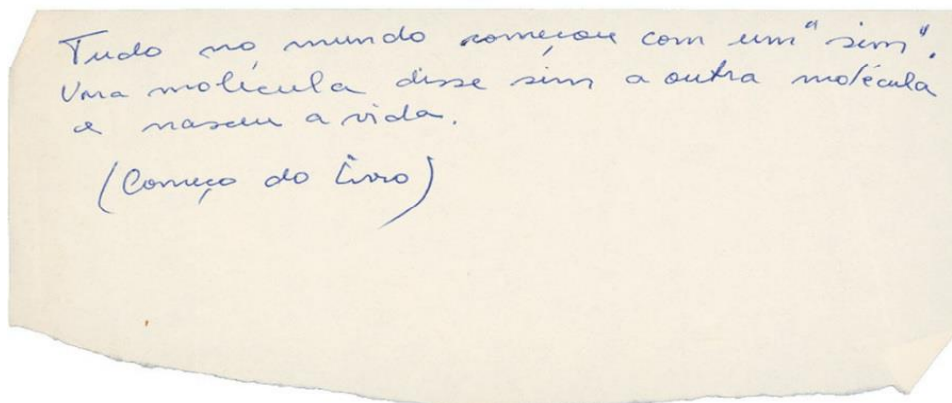 Tudo no mundo começou com um "sim".
Uma molécula disse sim a outra molécula
e nasceu a vida.
(Começo do livro)